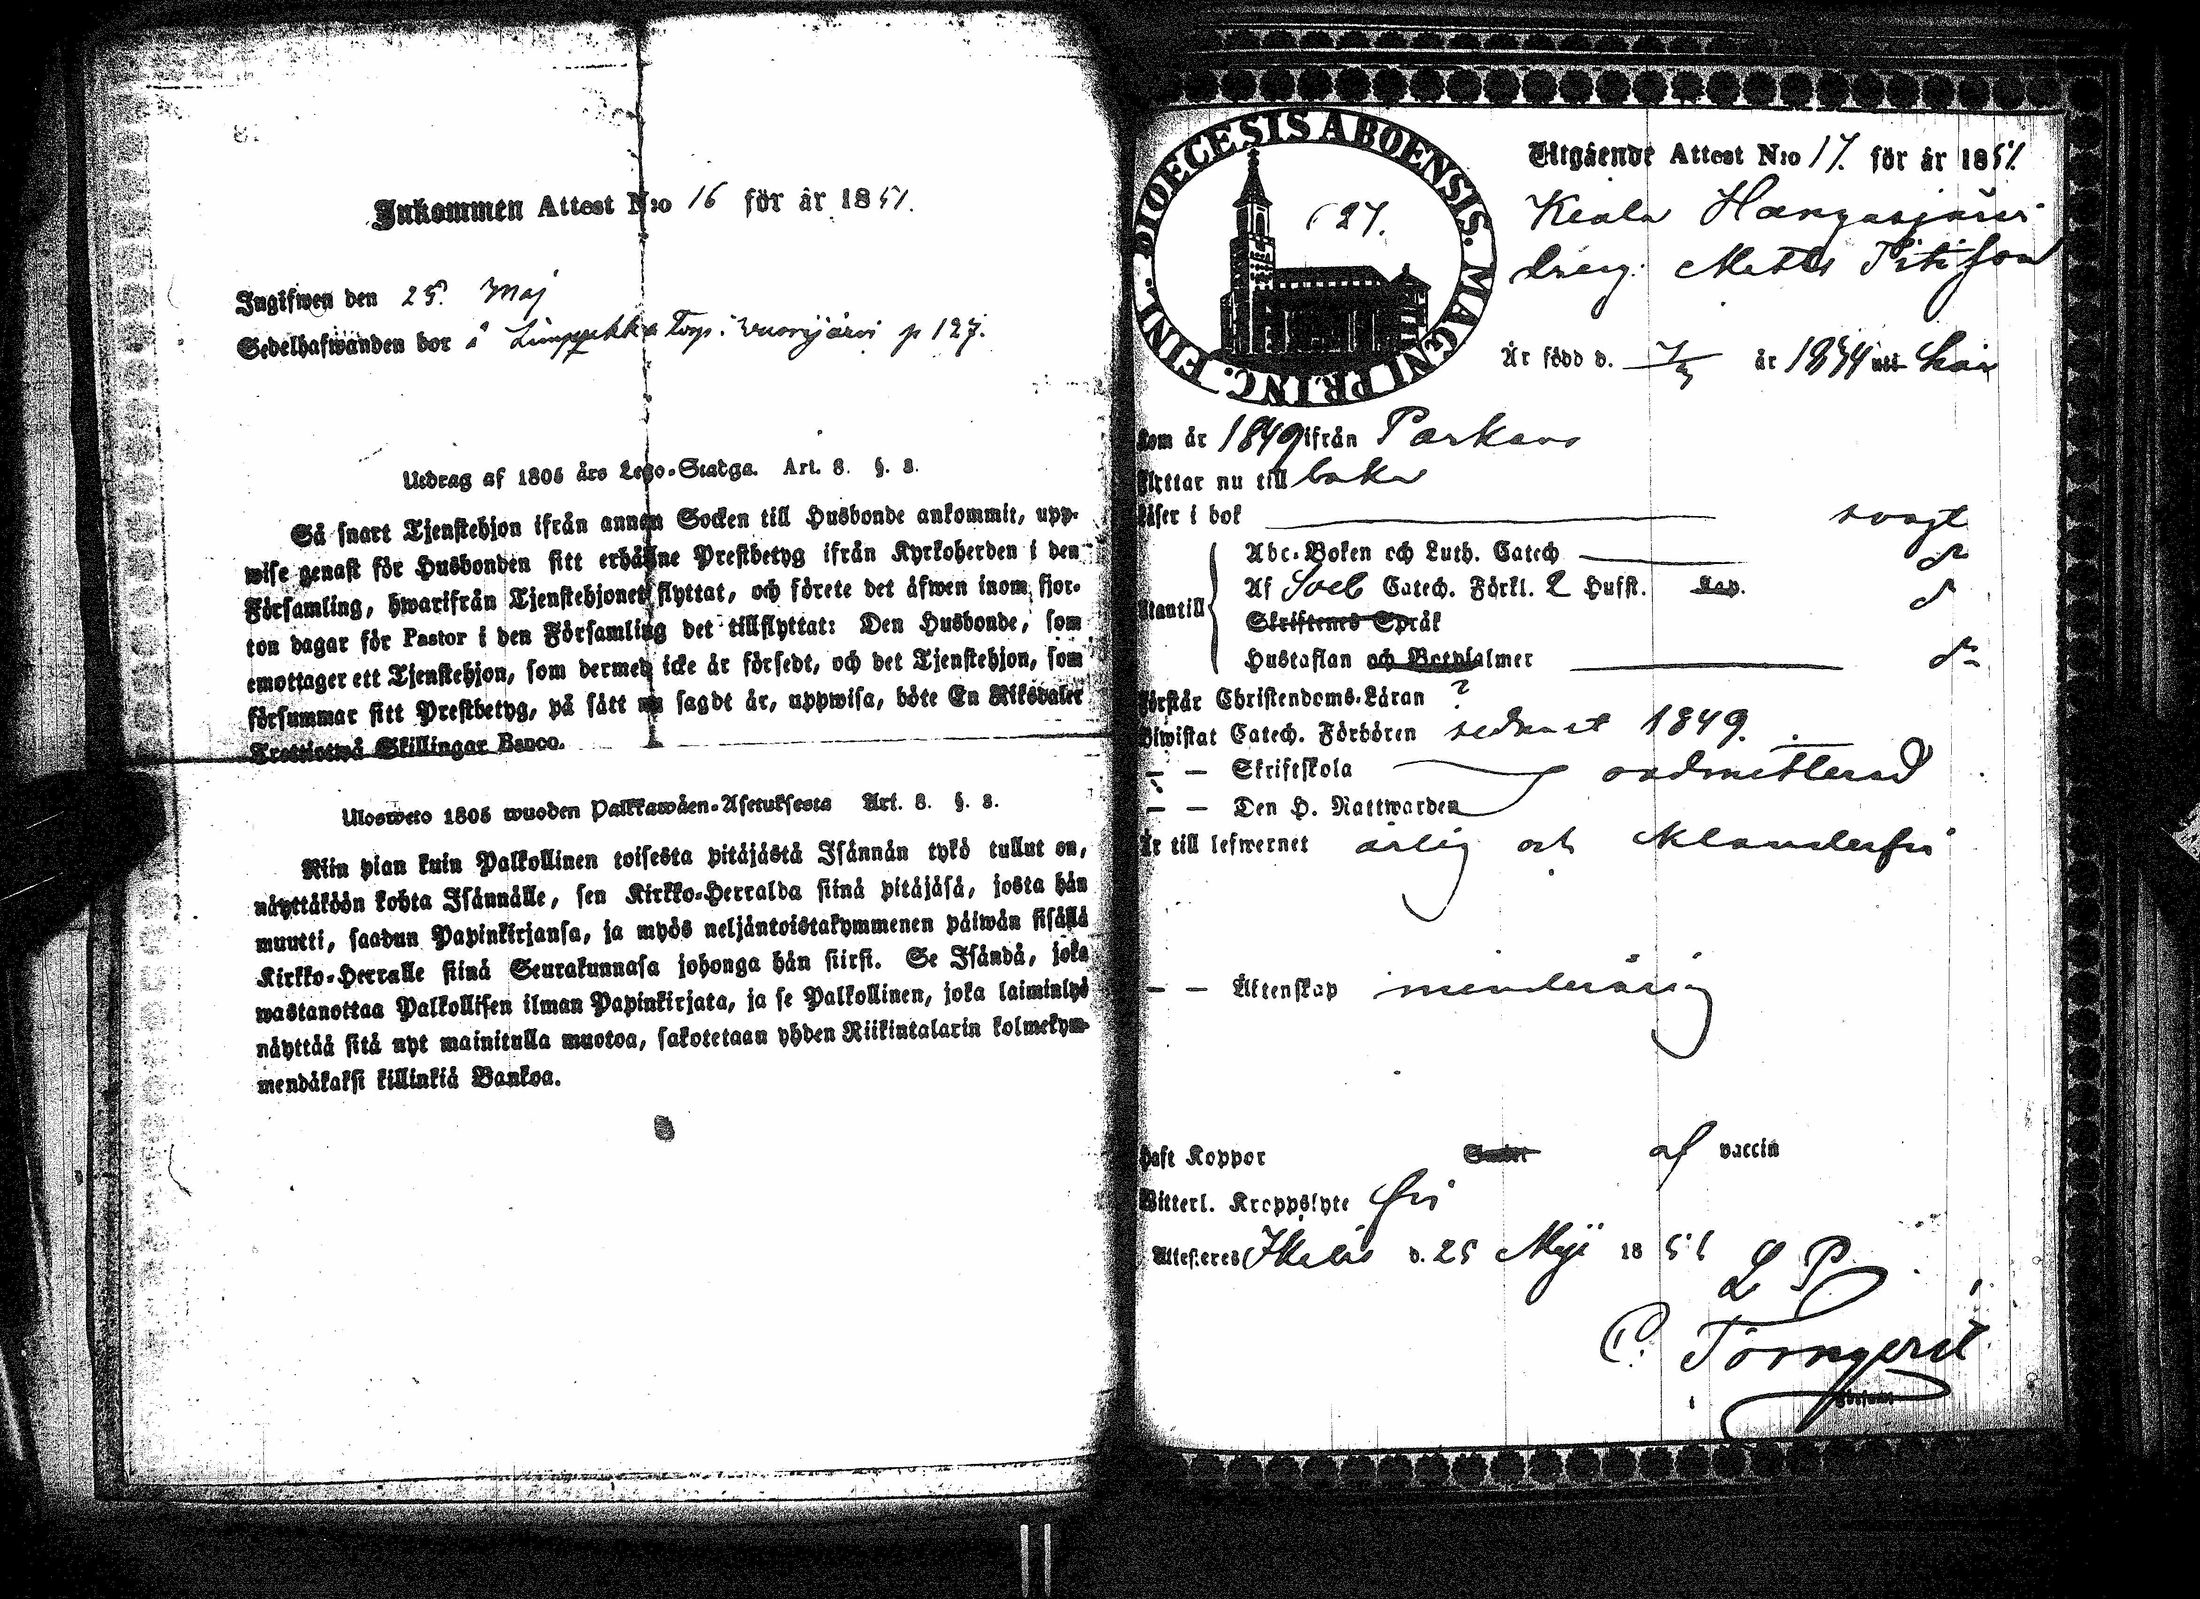 Inkommen Attest N:o 16 för år 1851.
Ingifwen den 25. Maj
Sedelhafwanden bor å Torp i p 127.
Utdrag af 1805 års Lego-Stadga. Art. 8. §. 8.
Så snart Tjenstehjon ifrån annan Socken till Husbonde ankommit, upp-
wise genast för Husbonden sitt erhållne Prestbetyg ifrån Kyrkoherden i den
Församling, hwarifrån Tjenstehjonet flyttat, och förete det äfwen inom fjor-
ton dagar för Pastor i den Församling det tillflyttat: Den Husbonde, som
emottager ett Tjenstehjon, som dermed icke är försedt, och det Tjenstehjon, som
försummar sitt Prestbetyg, på sätt nu sagdt är, uppwisa, böte En Riksdaler
Trettiotwå Skillingar Banco.
Uloswето 1805 wuoden Palkkawäen-Asetuksesta Art. 8. §. 8.
Niin pian kuin Palkollinen toisesta pitäjästä Isännän tykö tullut on,
näyttäköön kohta Isännälle, sen Kirkko-Herralda siinä pitäjäsä, josta hän
muutti, saadun Papinkirjansa, ja myös neljäntoistakymmenen päiwän sisällä
Kirkko-Herralle siinä Seurakunnasa johonga hän siirsi. Se Isändä, joka
wastanottaa Palkollisen ilman Papinkirjata, ja se Palkollinen, joka laiminlyö
näyttää sitä nyt mainitulla muotoa, sakotetaan yhden Riikintalarin kolmekym-
mendäkaksi killinkiä Bankoa.
DIOECESIS ABOENSIS. MAGNI PRINC. FINL.
127.
Utgående Attest N:o 17. för år 1851.
Hangasjärvi
dreng. Matts
Är född d. år 1834 uti här
kom år 1849 ifrån Parkano
flyttar nu till baka
läser i bok svagt
Abc-Boken och Luth. Catech d:o
Utantill Af Sveb Catech. Förkl. 2 Hufst. Kap. d:o
Skriftenes Språk
Hustaflan och Botpsalmer d:o
Förstår Christendoms-Läran ?
Biwistat Catech. Förhören sednast 1849.
— — Skriftskola oadmitterad
— — Den H. Nattwarden
Är till lefwernet ärlig och klanderfri
— — Äktenskap minderårig
Haft Koppor af vaccin
Witterl. Kroppslyte fri
Attesteres Ikalis d. 25 Maji 1851
L P
C. Törnqvist
i